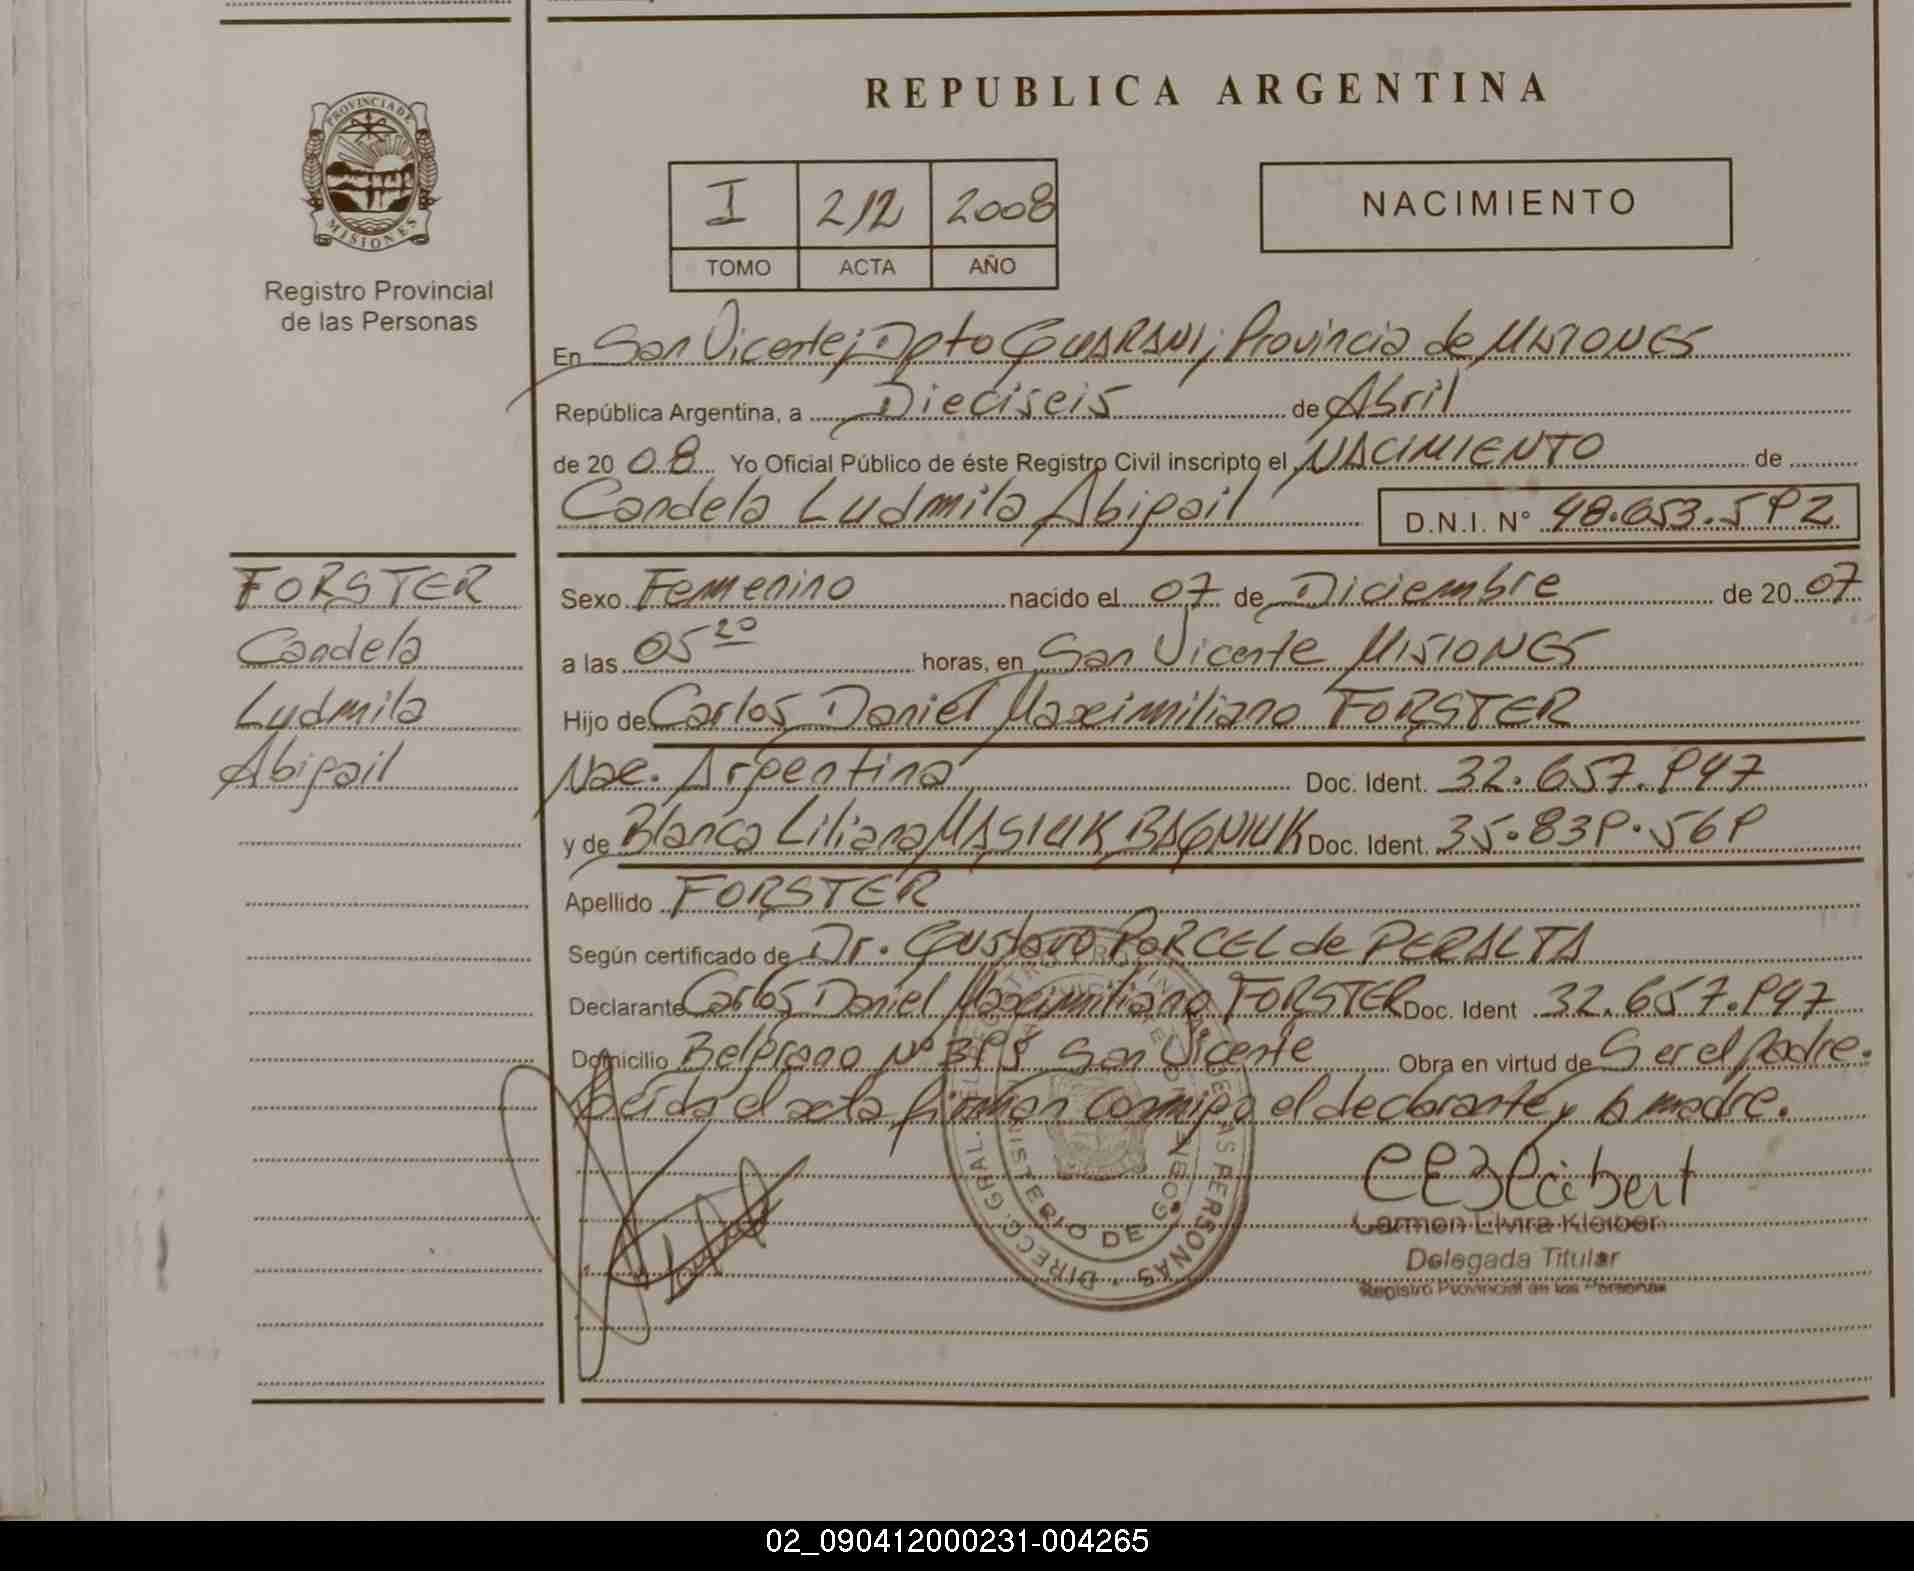 REPUBLICA ARGENTINA
PROVINCIA DE
MISIONES
Registro Provincial
de las Personas
I 212 2008
TOMO ACTA AÑO
NACIMIENTO
En San Vicente; Dpto GUARANI; Provincia de MISIONES
República Argentina, a Dieciseis de Abril
de 20 08 Yo Oficial Público de éste Registro Civil inscripto el NACIMIENTO de
Candela Ludmila Abigail D.N.I. N° 48.653.592
FORSTER
Candela
Ludmila
Abigail
Sexo Femenino nacido el 07 de Diciembre de 20 07
a las 05 20 horas, en San Vicente MISIONES
Hijo de Carlos Daniel Maximiliano FORSTER
Nac. Argentina Doc. Ident. 32.657.947
y de Blanca Liliana MASIUK BAGNIUK Doc. Ident. 35.839.569
Apellido FORSTER
Según certificado de Dr. Gustavo PORCEL de PERALTA
Declarante Carlos Daniel Maximiliano FORSTER Doc. Ident 32.657.947
Domicilio Belgrano N° San Vicente Obra en virtud de Ser el padre.
Leída el acta firman conmigo el declarante y la madre.
DIRECC. GRAL. PERSONAS
MINISTERIO DE GOBIERNO
Carmen Elvira Kleiber
Delegada Titular
Registro Provincial de las Personas
02_090412000231-004265